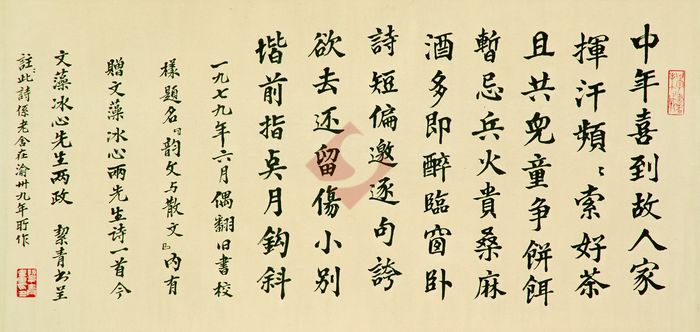 中年喜到故人家
揮汗頻〻索好茶
且共兒童争餅餌
暫忌兵火貴桑麻
酒多即醉臨窗卧
詩短偏邀逐句誇
欲去还留傷小别
堦前指点月鈎斜
一九七九年六月偶翻旧書校
樣題名《韵文与散文》内有
贈文藻冰心兩先生诗一首今
文藻冰心先生两政 絜青书呈
註:此詩係老舍在渝卅九年所作